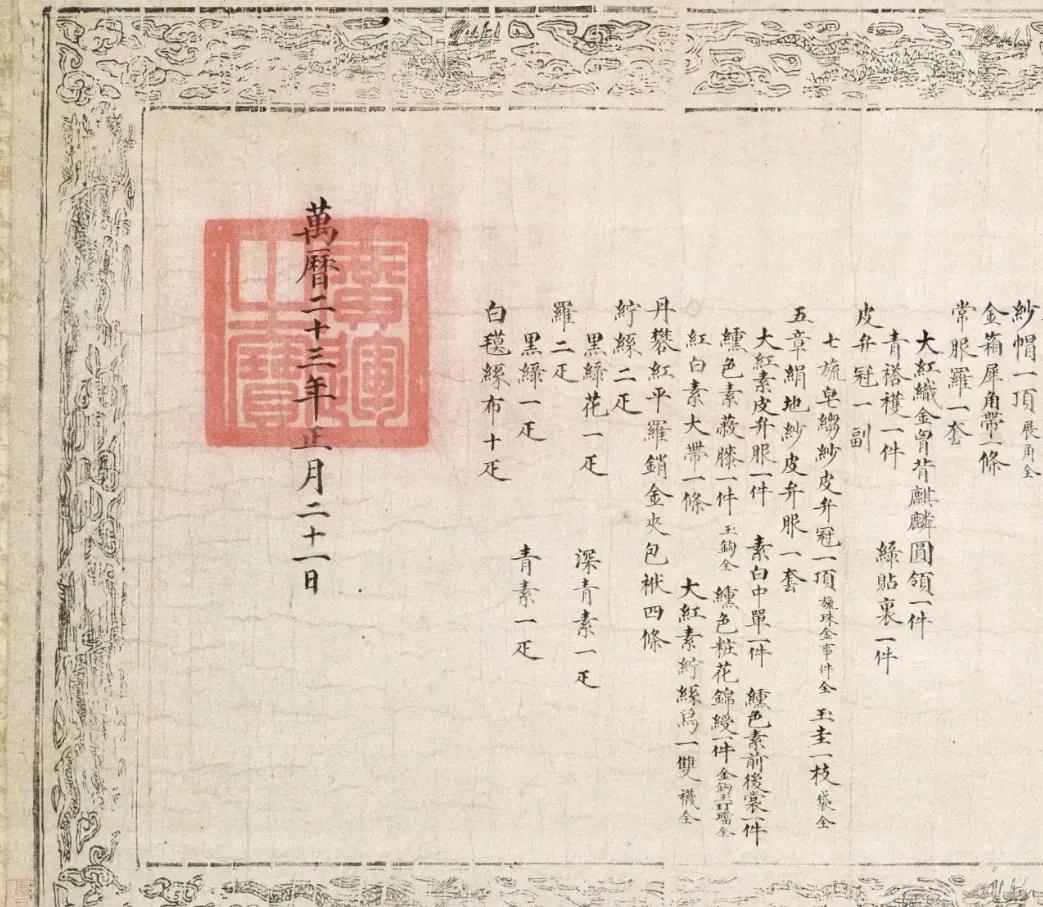 紗帽一頂 展角全
金箱犀角帶一條
常服羅一套
大紅織金胷背麒麟圓領一件
青褡𧞤一件 綠貼裏一件
皮弁冠一副
七旒皂縐紗皮弁冠一頂 旒珠金事件全 玉圭一枝 袋全
五章絹地紗皮弁服一套
大紅素皮弁服一件 素白中單一件 纁色素前後裳一件
纁色素蔽膝一件 玉鈎全 纁色粧花錦綬一件 金鈎玉玎璫全
紅白素大帶一條 大紅素紵絲舄一雙 襪全
丹礬紅平羅銷金夾包袱四條
紵絲二疋
黑綠花一疋 深青素一疋
羅二疋
黑綠一疋 青素一疋
白㲲絲布十疋
萬曆二十三年正月二十一日
廣運之寶